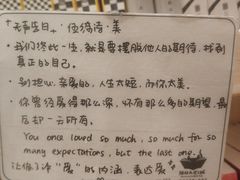 +无声生日+  值得诗·美
· 我们终此一生,就是要摆脱他人的期待,找到
真正的自己。
· 别担心,亲爱的,人生太短,而你太美。
· 你曾经爱得那么深,怀有那么多的期望,最
后却一无所有。
You once loved so much, so much for so
many expectations, but the last one.
让你了冷"爱"的内涵,表达爱